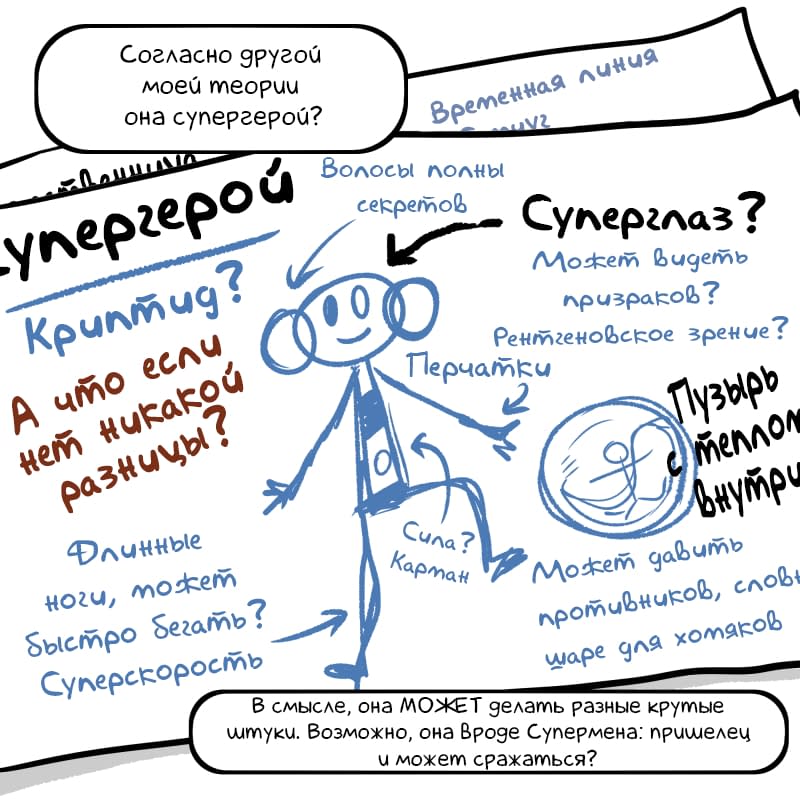 Согласно другой
моей теории
она супергерой?
Временная линия
Волосы полны
секретов
упергерой
Суперглаз?
Может видеть
призраков?
Рентгеновское зрение?
Криптид?
А что если
нет никакой
разницы?
Перчатки
Пузырь
с теплом
внутри
Сила?
Карман
Длинные
ноги, может
быстро бегать?
Суперскорость
Может давить
противников, словн
шаре для хомяков
В смысле, она МОЖЕТ делать разные крутые
штуки. Возможно, она вроде Супермена: пришелец
и может сражаться?